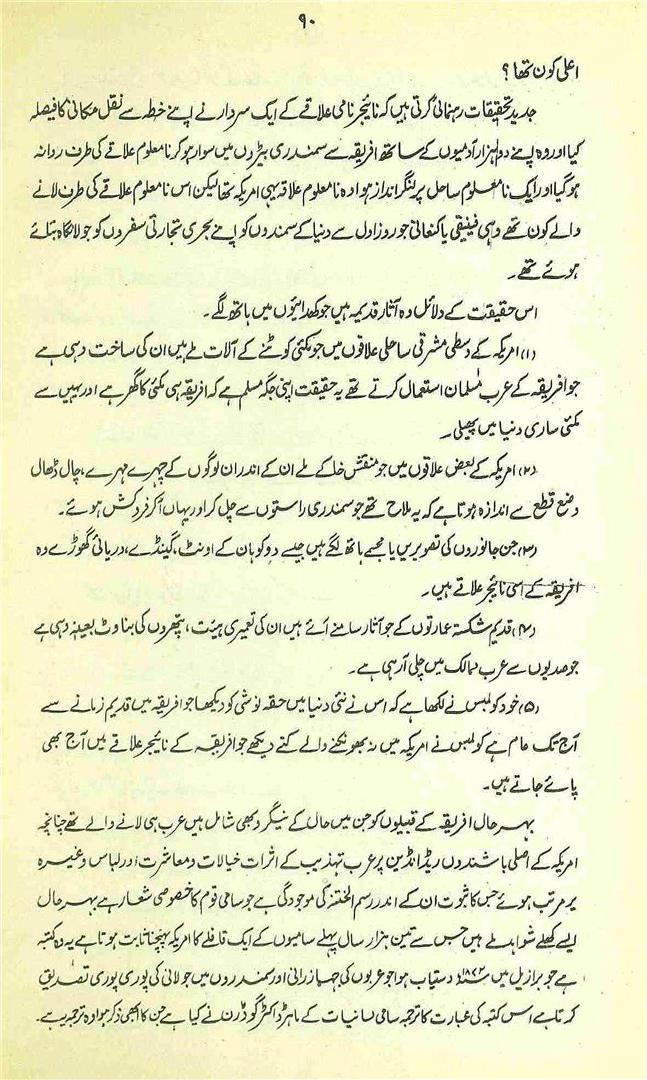 ۹۰
اعلیٰ کون تھا؟
جدید تحقیقات رہنمائی کرتی ہیں کہ نائیجر نامی علاقے کے ایک سردار نے اپنے خطہ سے نقل مکانی کا فیصلہ
کیا اور وہ اپنے دو ہزار آدمیوں کے ساتھ افریقہ سے سمندری بیڑوں میں سوار ہو کر نامعلوم علاقے کی طرف روانہ
ہو گیا اور ایک نامعلوم ساحل پر لنگر انداز ہوا وہ نامعلوم علاقہ یہی امریکہ تھا لیکن اس نامعلوم علاقے کی طرف لانے
والے کون تھے وہی فینیقی یا کنعانی جو روز اول سے دنیا کے سمندروں کو اپنے بحری تجارتی سفروں کو جولانگاہ بنائے
ہوئے تھے۔
اس حقیقت کے دلائل وہ آثار قدیمہ ہیں جو کھدائیوں میں ہاتھ لگے۔
(۱) امریکہ کے وسطی مشرقی ساحلی علاقوں میں جو مکئی کوٹنے کے آلات ملے ہیں ان کی ساخت وہی ہے
جو افریقہ کے عرب مسلمان استعمال کرتے تھے یہ حقیقت اپنی جگہ مسلم ہے کہ افریقہ ہی مکئی کا گھر ہے اور یہیں سے
مکئی ساری دنیا میں پھیلی۔
(۲) امریکہ کے بعض علاقوں میں جو منقش خاکے ملے ان کے اندر ان لوگوں کے چہرے مہرے، چال ڈھال
وضع قطع سے اندازہ ہوتا ہے کہ یہ ملاح تھے جو سمندری راستوں سے چل کر اور یہاں آکر فروکش ہوئے۔
(۳) جن جانوروں کی تصویریں یا مجسمے ہاتھ لگے ہیں جیسے دو کوہان کے اونٹ، گینڈے، دریائی گھوڑے وہ
افریقہ کے اسی نائیجر علاقے ہیں۔
(۴) قدیم شکستہ عمارتوں کے جو آثار سامنے آئے ہیں ان کی تعمیری ہیئت، پتھروں کی بناوٹ بعینہٖ وہی ہے
جو صدیوں سے عرب ممالک میں چلی آرہی ہے۔
(۵) خود کولمبس نے لکھا ہے کہ اس نے نئی دنیا میں حقہ نوشی کو دیکھا جو افریقہ میں قدیم زمانے سے
آج تک عام ہے کولمبس نے امریکہ میں نہ بھونکنے والے کتے دیکھے جو افریقہ کے نائیجر علاقے میں آج بھی
پائے جاتے ہیں۔
بہر حال افریقہ کے قبیلوں کو جن میں حال کے نیگرو بھی شامل ہیں عرب ہی لانے والے تھے چنانچہ
امریکہ کے اصلی باشندوں ریڈ انڈین پر عرب تہذیب کے اثرات خیالات و معاشرت اور لباس وغیرہ
پر مرتب ہوئے جس کا ثبوت ان کے اندر رسم الختنہ کی موجودگی ہے جو سامی قوم کا خصوصی شعار ہے بہر حال
ایسے کھلے شواہد ملے ہیں جس سے تین ہزار سال پہلے سامیوں کے ایک قافلے کا امریکہ پہنچنا ثابت ہوتا ہے یہ وہ کتبہ
ہے جو برازیل میں ۱۸۷۳ء دستیاب ہوا جو عربوں کی جہازرانی اور سمندروں میں جولانی کی پوری پوری تصدیق
کرتا ہے اس کتبہ کی عبارت کا ترجمہ سامی لسانیات کے ماہر ڈاکٹر گورڈن نے کیا ہے جن کا ابھی ذکر ہوا وہ ترجمہ یہ ہے۔